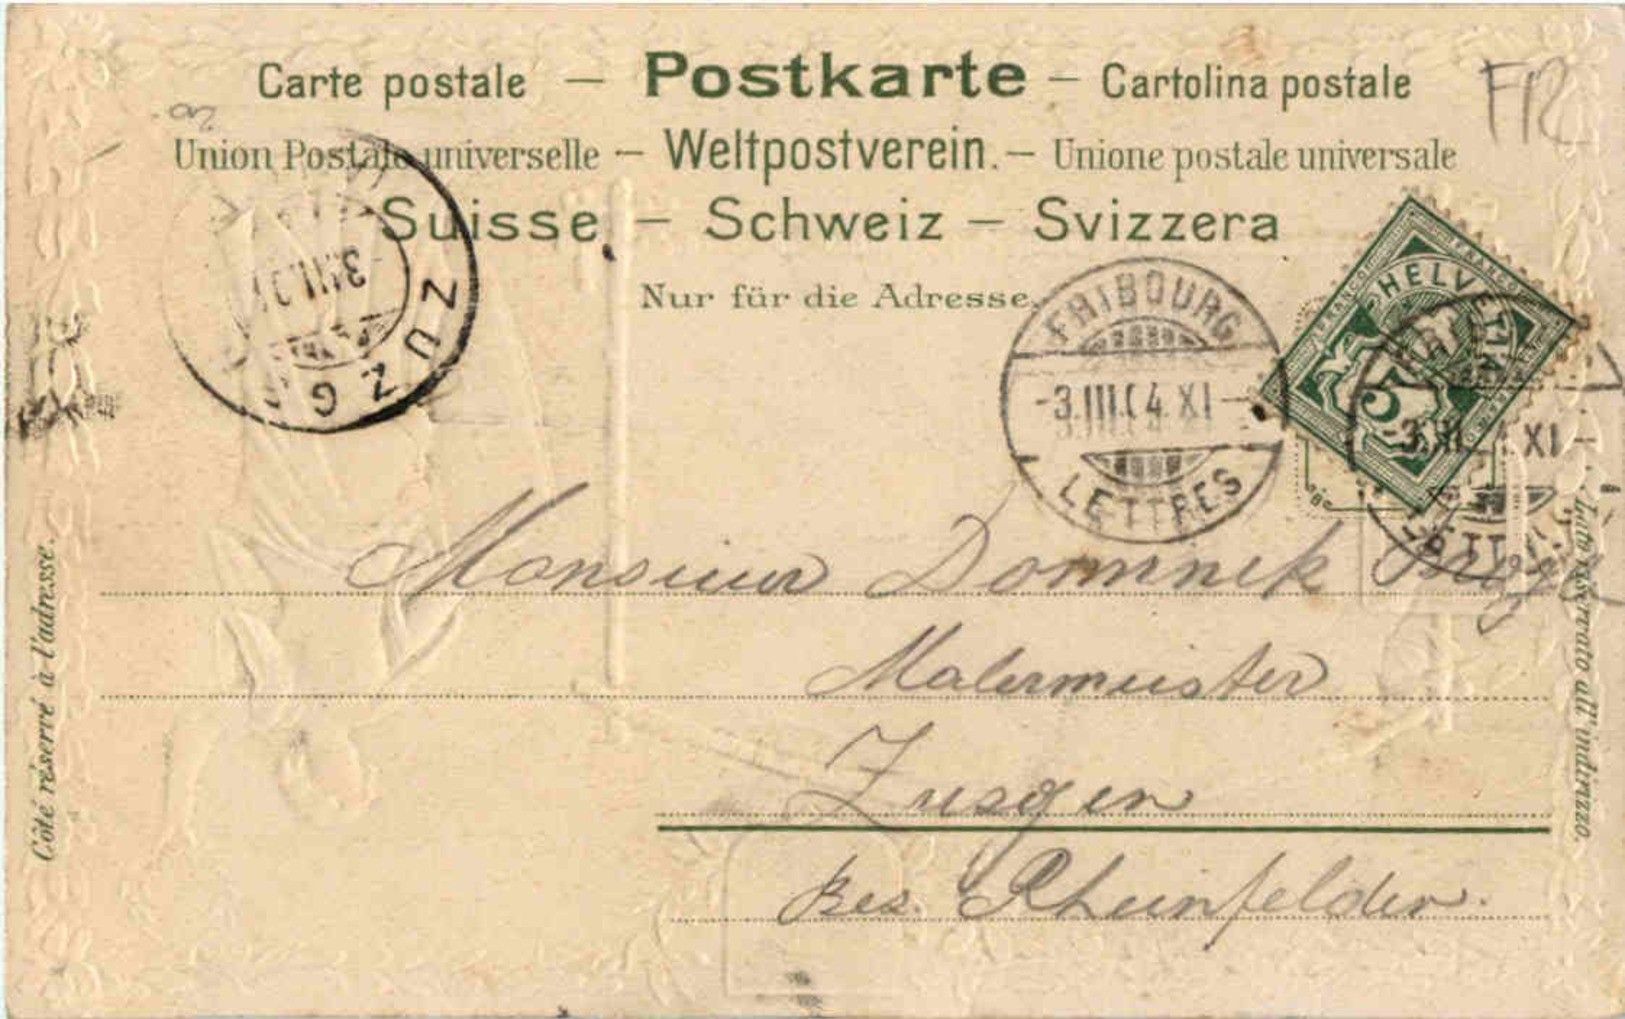 Carte postale — Postkarte — Cartolina postale
FR
Union Postale universelle — Weltpostverein. — Unione postale universale
Suisse — Schweiz — Svizzera
Nur für die Adresse.
ZUZG
3.III.0
FRIBOURG
-3.III.04.XI-
LETTRES
FRANCO HELVETIA FRANCO
5
-3.III. 4.XI-
LETTR
Monsieur Dominik
Malermeister
Zusgen
Bez. Rheinfelden.
Côté réservé à l'adresse.
Lato riservato all'indirizzo.